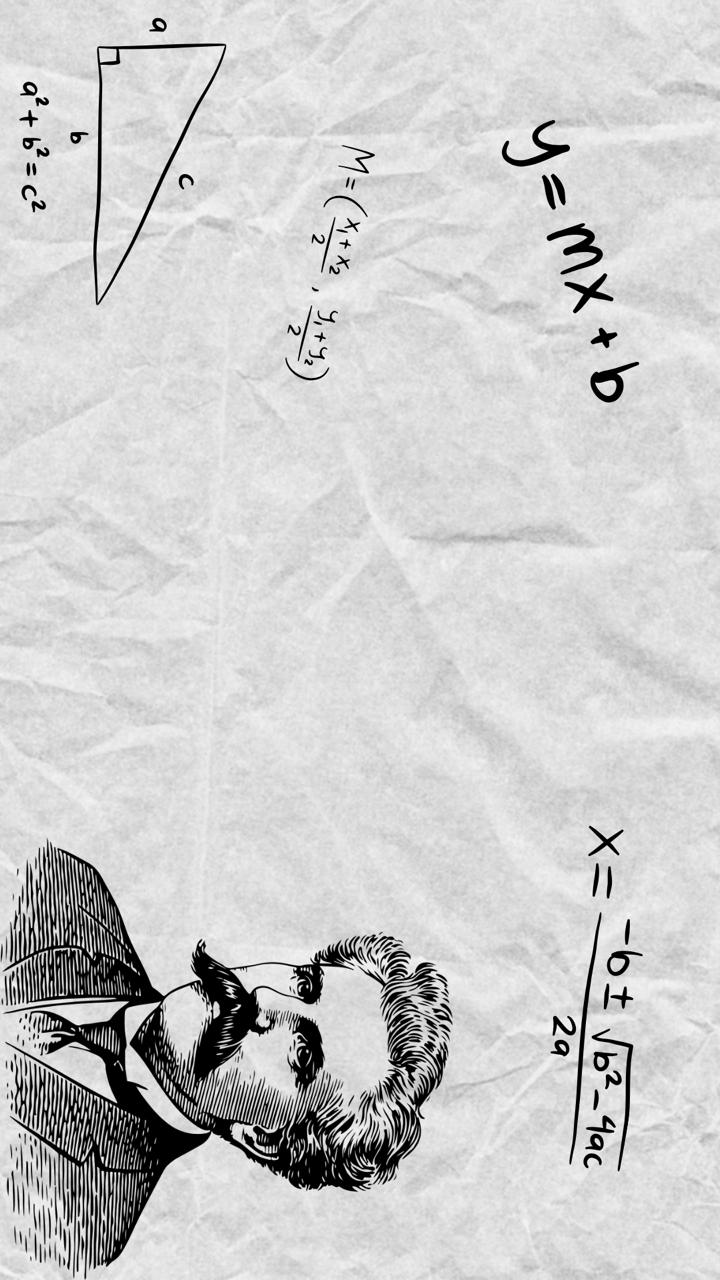 y = mx + b
x = (-b ± √(b² - 4ac)) / 2a
M = ((x₁ + x₂)/2 , (y₁ + y₂)/2)
c
a
b
a² + b² = c²